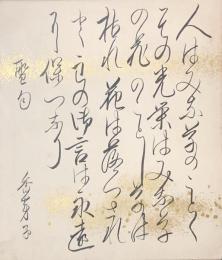 人はみな草のごとく
その光栄はみな草
の花のごとし草は
枯れ花は落つされ
ど主の御言は永遠
に保つなり
聖句